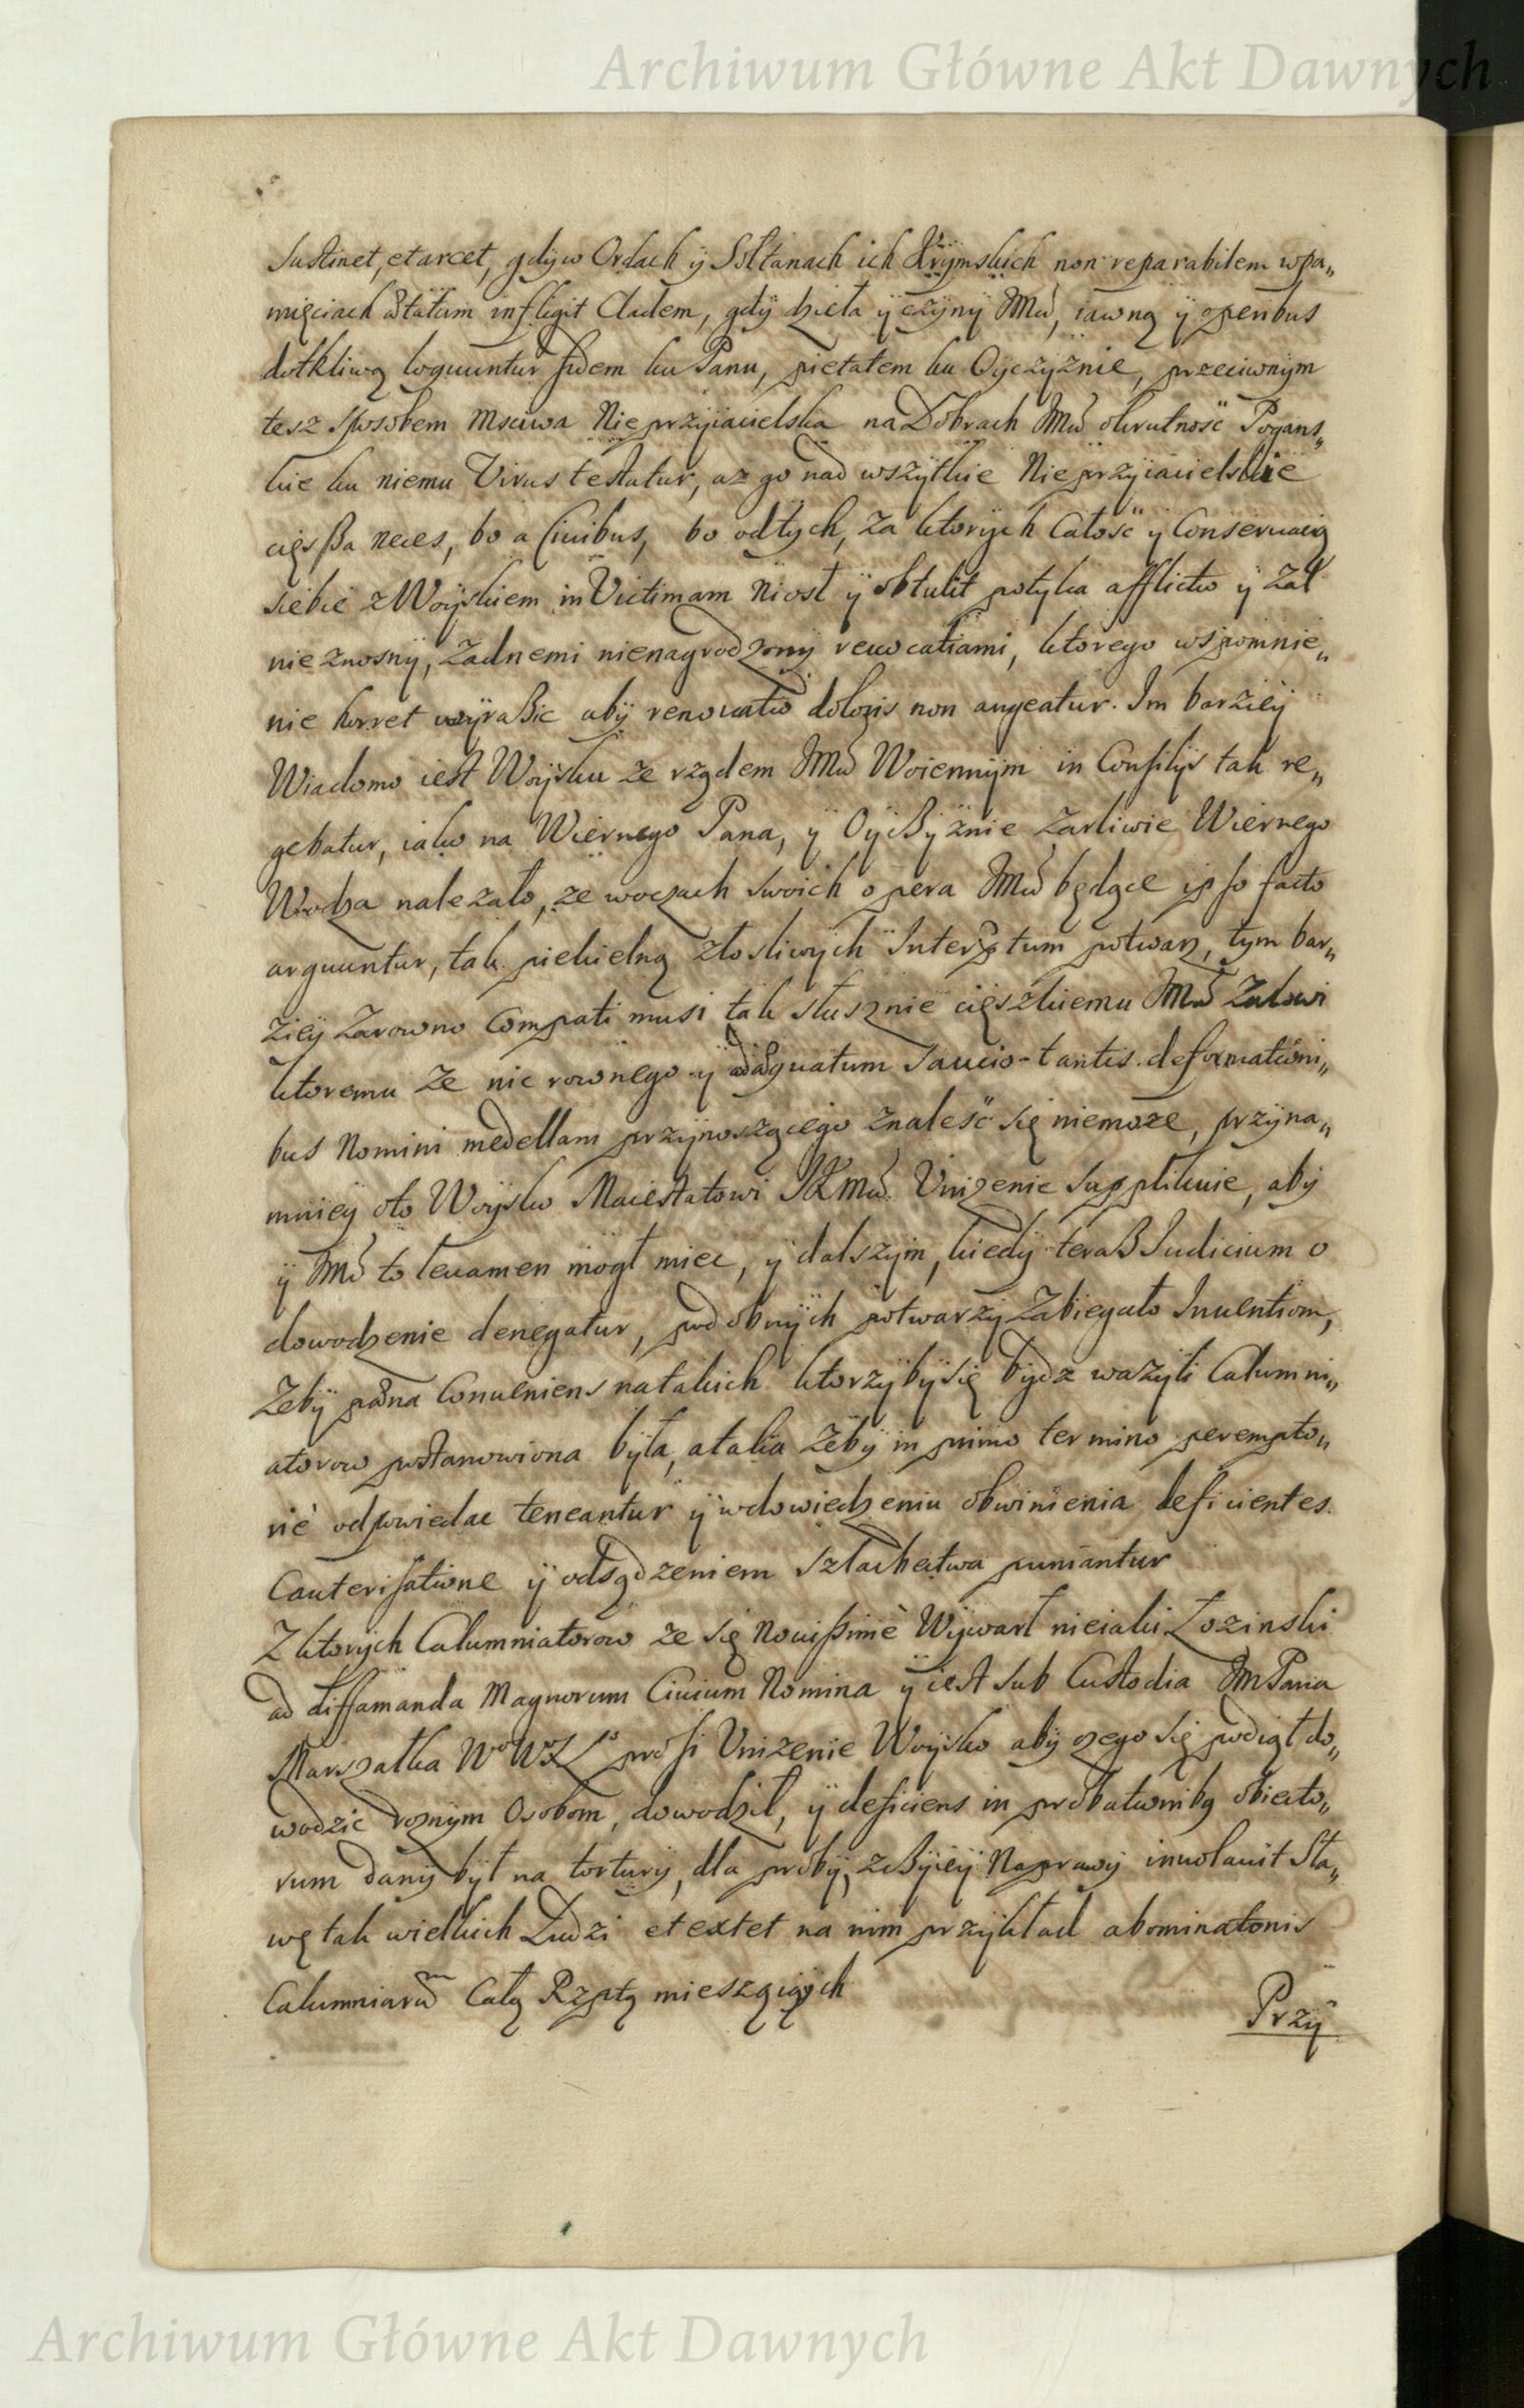 Archiwum Główne Akt Dawnych
Sustinet, et arcet, gdÿ w Ordach ÿ Sołtanach ich Krÿmskich non reparabilem wpa„
mięciach ætatum infligit Cladem, gdÿ dzieła ÿ czÿnÿ JMci, iawną ÿ operibus
dotkliwą loquuntur fidem ku Panu, pietatem ku Oyczÿznie, przeciwnÿm
tesz sposobem Msciwa Nieprzÿiacielska na Dobrach JMci okrutnosć Pogans„
kie ku niemu Virus testatur, az go nad wszÿtkie Nieprzÿiacielskie
cięsßa neces, bo a Ciuibus, bo od tÿch, za ktorÿch Całosć ÿ Conseruacią
siebie z Woÿskiem in Victimam niosł ÿ obtulit potÿka afflictio ÿ zal
nieznosnÿ, zadnemi nienagrodzonÿ reuocatiami, ktorego wspomnie„
nie horret wÿraßic abÿ renouatio doloris non augeatur. Im barziey
Wiadomo iest Woÿsku ze rządem JMci Woiennÿm in Consilijs tak re„
gebatur, iako na Wiernego Pana, ÿ Oÿcßÿznie zarliwie Wiernego
Wodza nalezało, ze w oczach swoich opera JMci będące ipso facto
arguuntur, tak piekielną złosliwÿch Interptum potwarz, tym bar„
ziey zarowno Compati musi tak słusznie cięszkiemu JMci Zalowi
ktoremu ze nic rownego ÿ adæquatum saucio tantis deformationi„
bus Nomini medellam przÿnoszącego znalesć się niemoze, przÿna„
mniey oto Woÿsko Maiestatowi JKMci Unizenie supplikuie, abÿ
ÿ JMć to leuamen mogł miec, ÿ dalszÿm, kiedÿ teraß Iudicium o
dowodzenie denegatur, podobnÿch potwarzÿ Zabiegało Inuentiom,
Zebÿ pæna Conueniens na takich ktorzÿbÿ się bÿdz wazÿli Calumni„
atorow postanowiona bÿła, a taka zebÿ in primo termino perempto„
riè odpowiedac teneantur ÿ w dowiedzeniu obwinienia deficientes
Cauterisatione ÿ odsądzeniem szlachectwa puniantur
Z ktorÿch Calumniatorow ze się Nouißimè Wÿwarł nieiaki Łozinski
ad diffamanda Magnorum Ciuium Nomina ÿ iest sub Custodia JmPana
Marszałka prosi Unizenie Woÿsko abÿ czego się podiął do„
wodzic roznÿm Osobom, dowodził, ÿ deficiens in probationibq obiecto„
rum danÿ bÿł na torturÿ, dla probÿ, z cßÿiey Naprawÿ inuolauit sła„
wę tak wielkich Ludzi et extet na nim przÿkład abominationis
Calumniarum Całą Rzptą mieszaiącÿch
Przÿ
Archiwum Główne Akt Dawnych